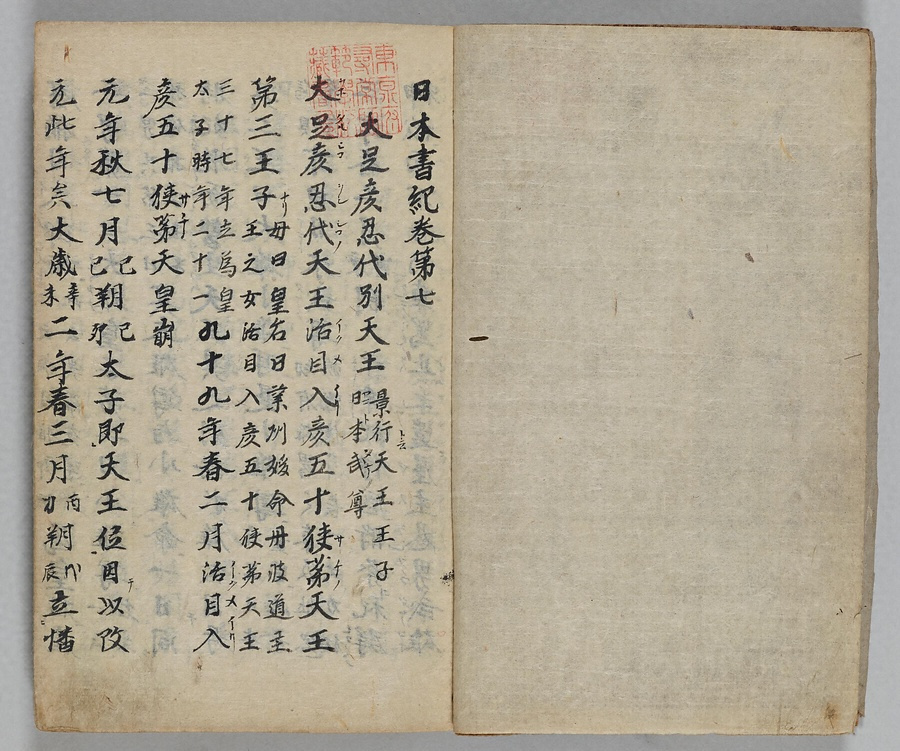 日本書紀巻第七
大足彦忍代別天王 景行天王王子
昭本武尊
大足彦忍代天王活目入彦五十狭茅天王
第三王子母曰皇名曰葉州媛命丹波道主
王之女活目入彦五十狭茅天王
三十七年立為皇
太子時年二十一九十九年春二月活目入
彦五十狭茅天皇崩
元年秋七月己巳朔己卯太子即天王位因以改
元此年矣大歳辛未二年春三月丙朔戊辰立幡